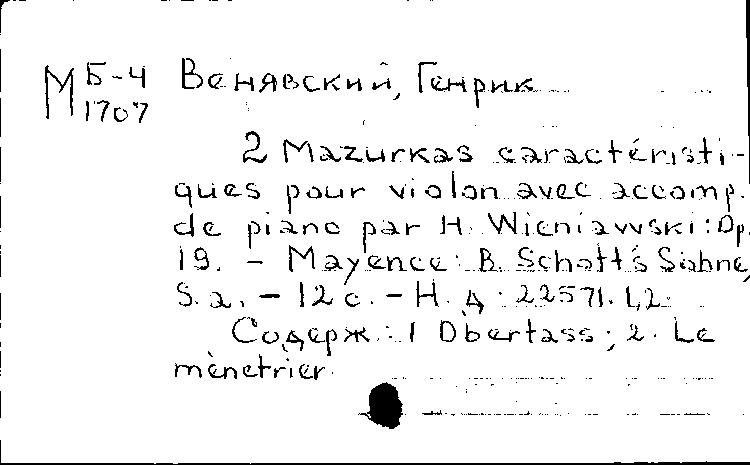 М Б-4 Венявский, Генрик
1707
2 Mazurkas caractéristi-
ques pour violon avec accomp.
de piano par H. Wieniawski: Op.
19. - Mayence: B. Schott's Söhne,
S.a. - 12 c. - Н.д: 22571.1,2.
Содерж.: 1 Obertass; 2. Le
mènetrier.